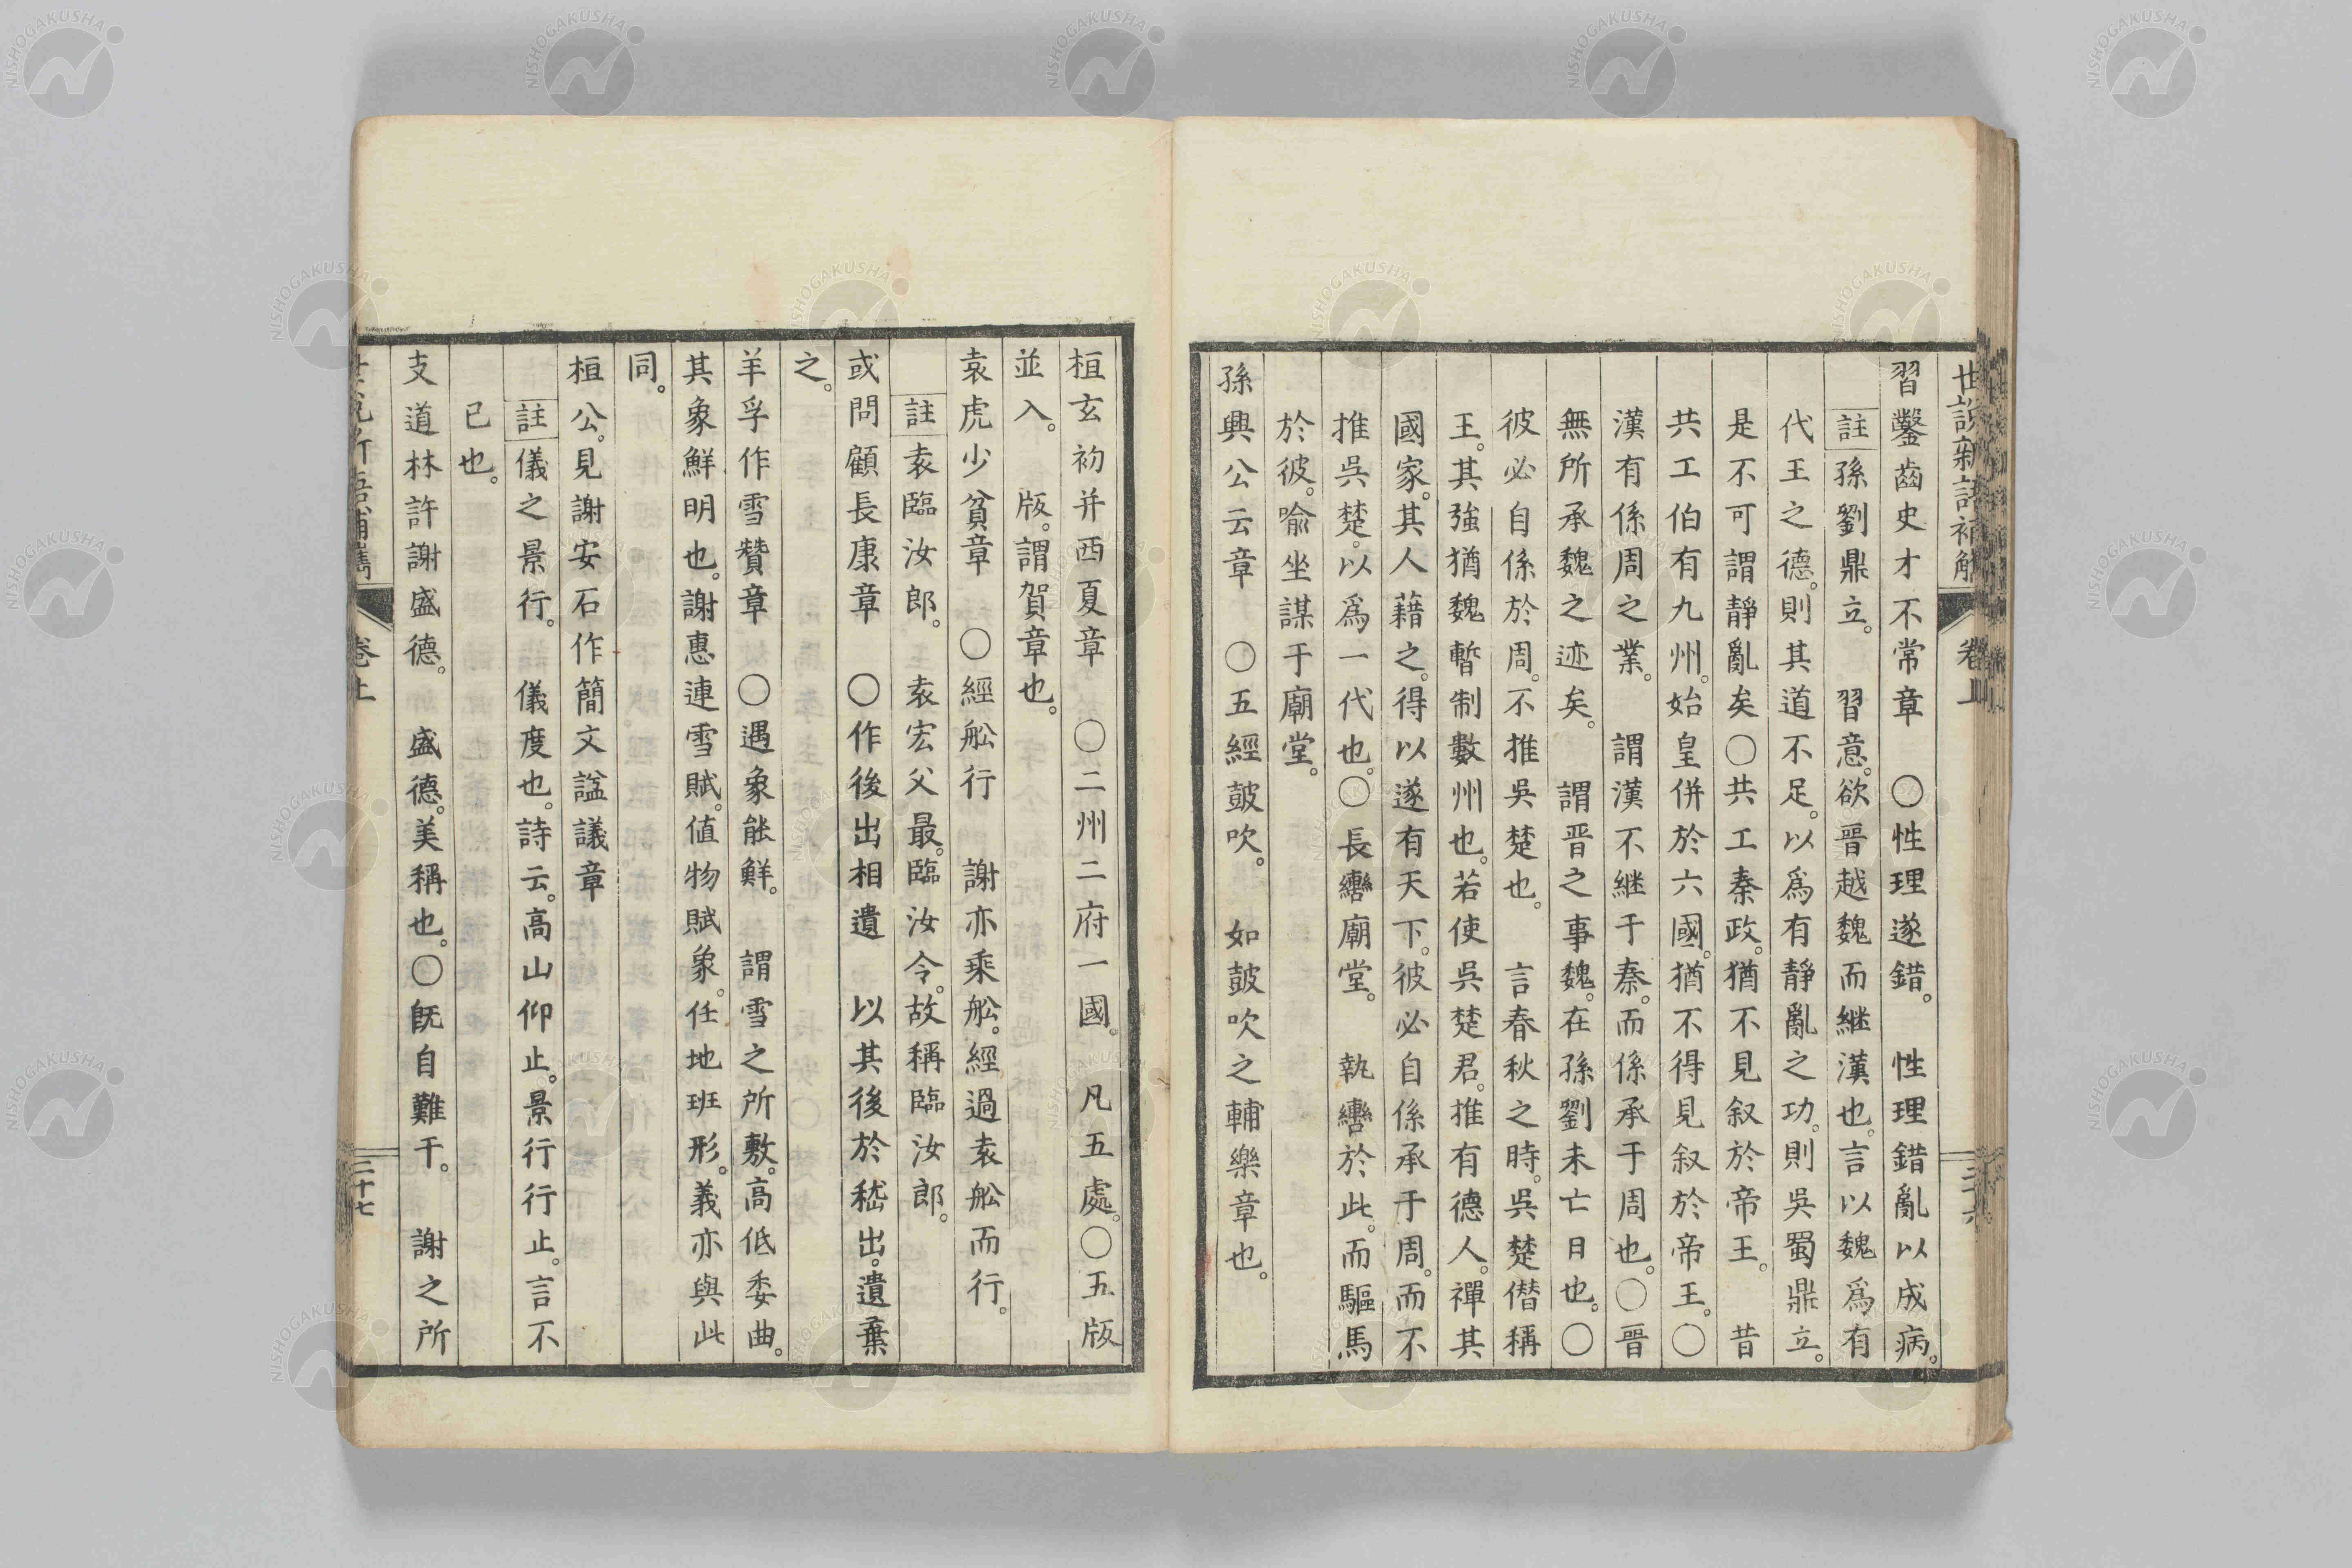 習鑿齒史才不常章　〇性理遂錯。　性理錯亂以成病。
註孫劉鼎立。　習意。欲晉越魏而継漢也。言以魏爲有
代王之德。則其道不足。以爲有靜亂之功。則吳蜀鼎立。
是不可謂靜亂矣〇共工秦政。猶不見叙於帝王。　昔
共工伯有九州。始皇併於六國。猶不得見叙於帝王。〇
漢有係周之業。　謂漢不継于秦。而係承于周也。〇晋
無所承魏之迹矣。　謂晋之事魏。在孫劉未亡日也。〇
彼必自係於周。不推吳楚也。　言春秋之時。吳楚僣稱
王。其強猶魏暫制數州也。若使吳楚君。推有德人。禪其
國家。其人藉之。得以遂有天下。彼必自係承于周。而不
推吳楚。以爲一代也。〇長轡廟堂。　執轡於此。而驅馬
於彼。喩坐謀于廟堂。
孫興公云章　〇五經皷吹。　如皷吹之輔樂章也。
世說新語補觿　卷上
桓玄初并西夏章　〇二州二府一國。　凡五處。〇五版
並入。　版。謂賀章也。
袁虎少貧章　〇經舩行　謝亦乘舩。經過袁舩而行。
註袁臨汝郎。　袁宏父最。臨汝令。故稱臨汝郎。
或問顧長康章　〇作後出相遺　以其後於嵇出。遺棄
之。
羊孚作雪贊章　〇遇象能鮮。　謂雪之所敷。高低委曲。
其象鮮明也。謝惠連雪賦。値物賦象。任地班形。義亦與此
同。
桓公。見謝安石作簡文諡議章
註儀之景行。　儀度也。詩云。高山仰止。景行行止。言不
已也。
支道林許謝盛德。　盛德。美稱也。〇旣自難干。　謝之所
卷上　二十七